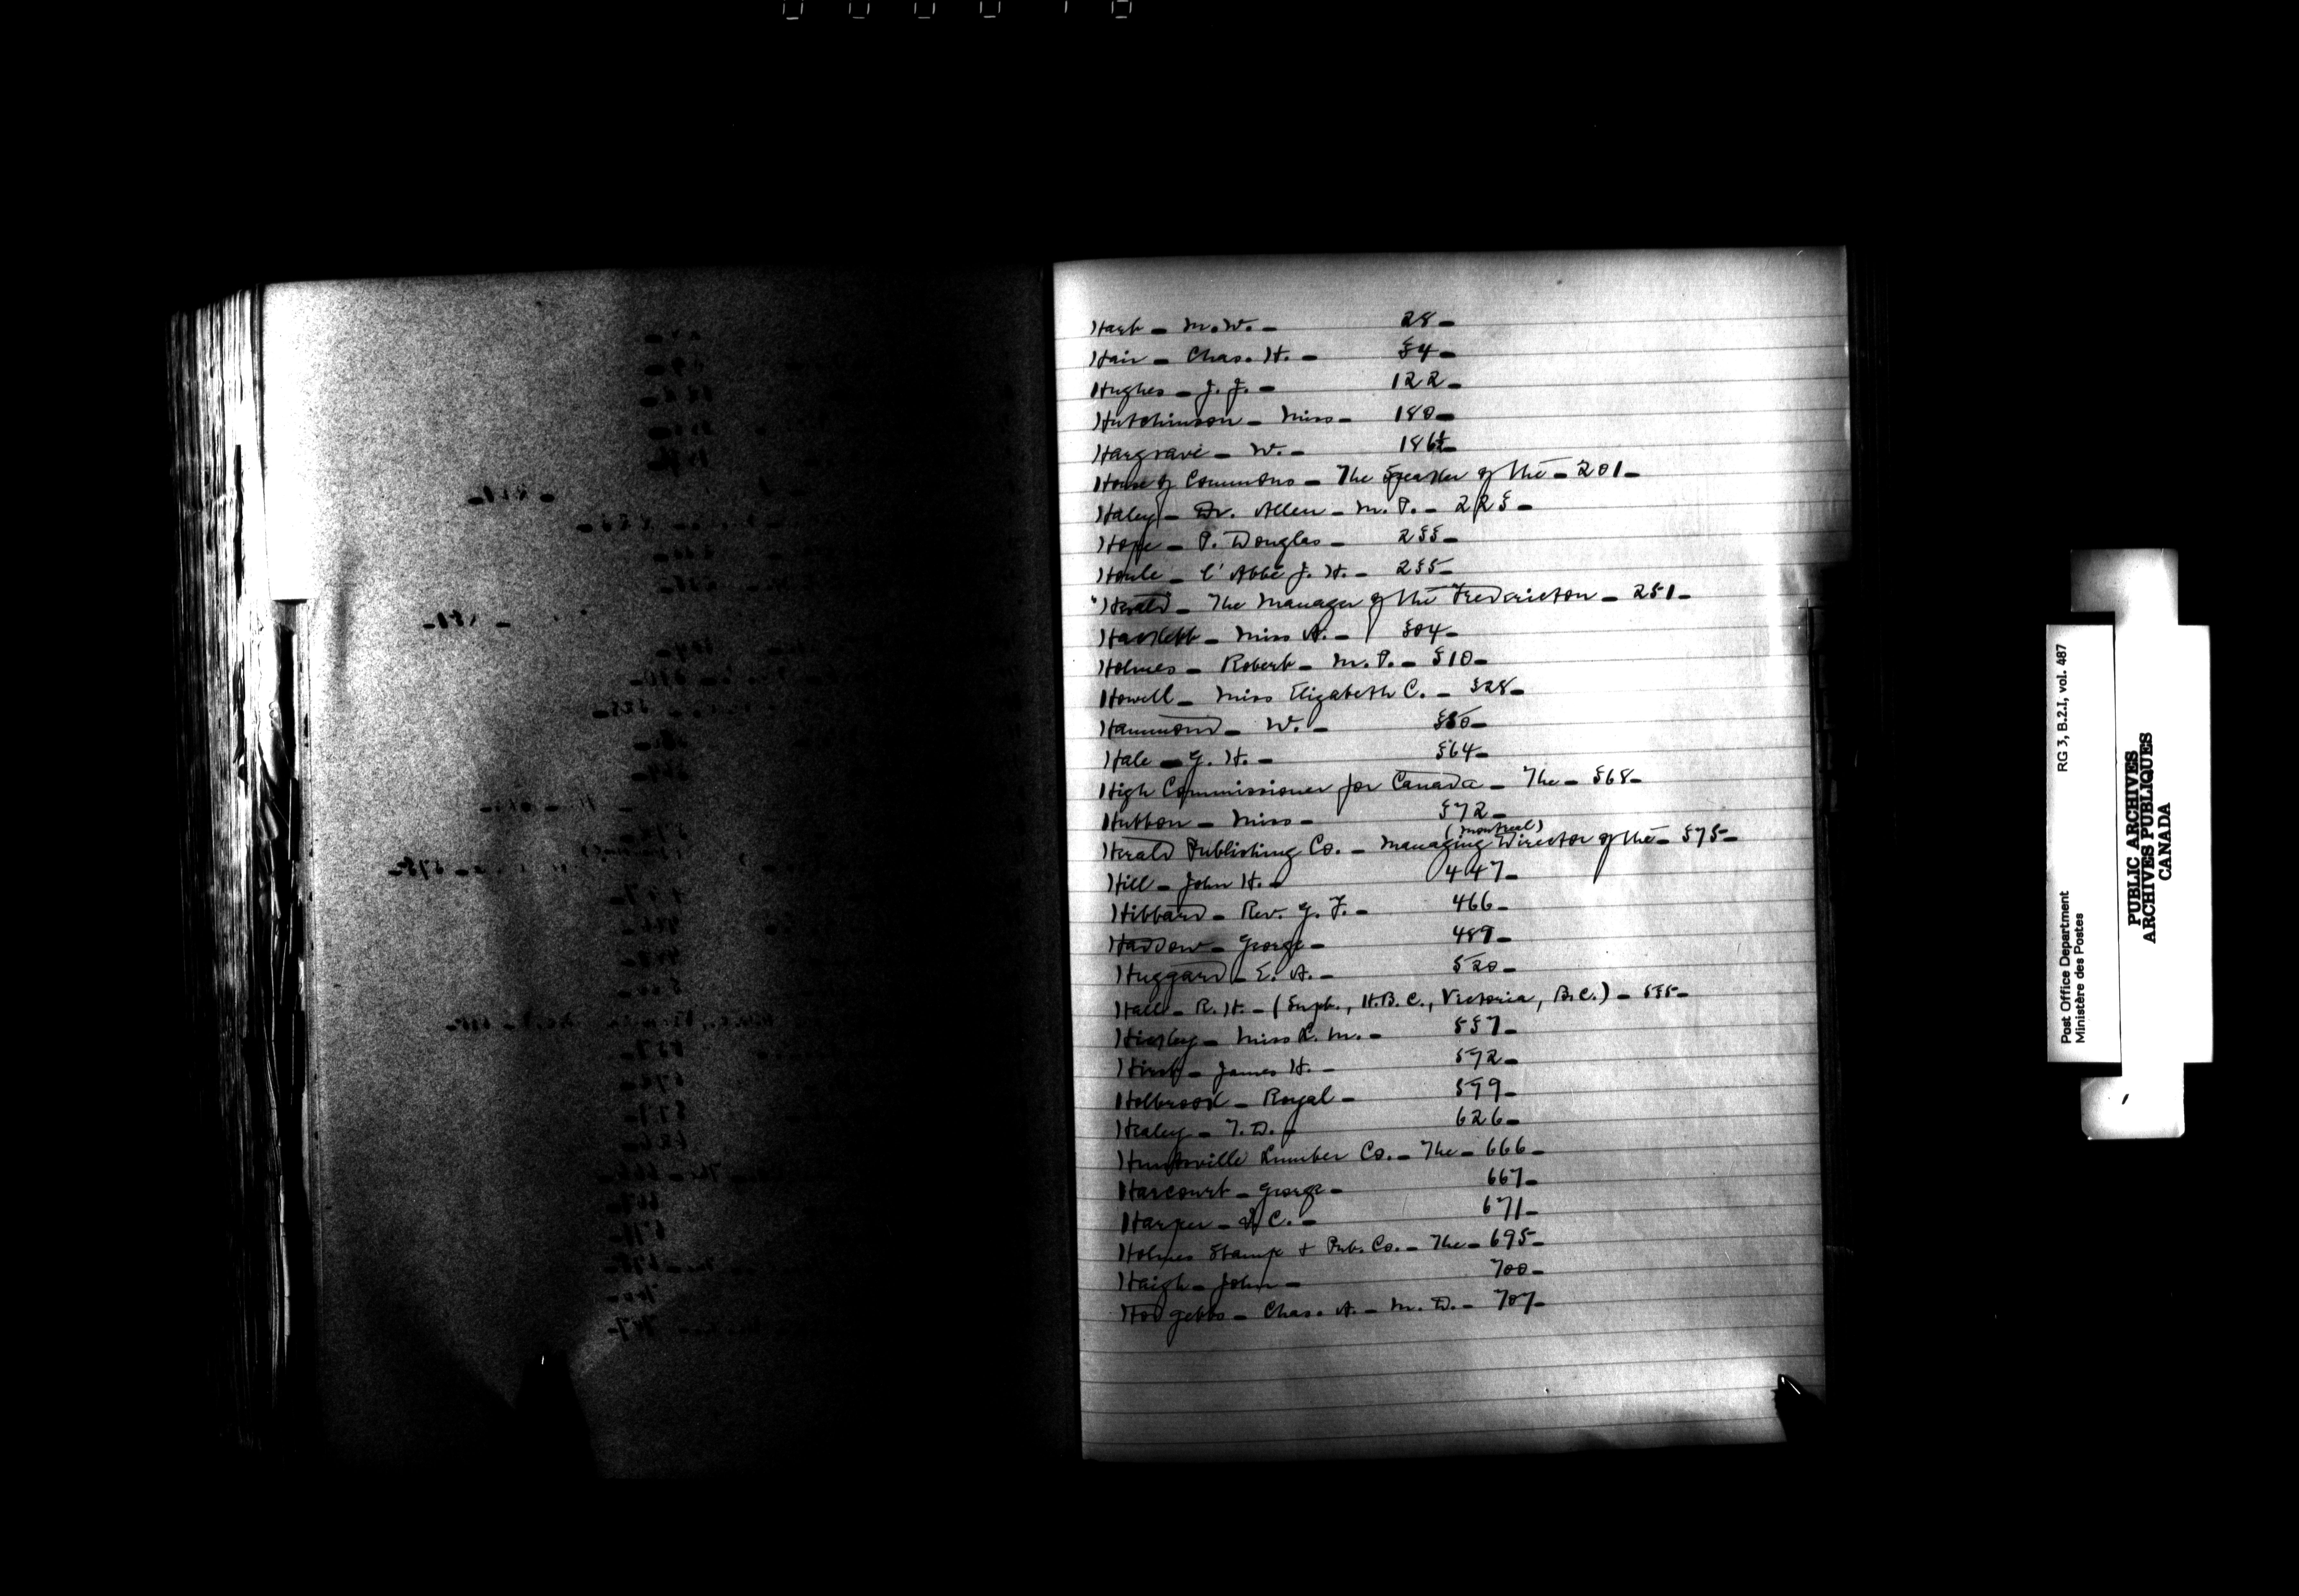 Hart - M.W. - 28 -
Hair - Chas. H. - 34 -
Hughes - J. J. - 122 -
Hutchinson - Miss - 180 -
Hargrave - W. - 186½ -
House of Commons - The Speaker of the - 201 -
Haley - Dr. Allen - M. P. - 223 -
Hope - P. Douglas - 233 -
Houle - l'Abbé J. H. - 235 -
"Herald" - The Manager of the Fredericton - 251 -
Haslett - Miss A. - 304 -
Holmes - Robert - M. P. - 310 -
Howell - Miss Elizabeth C. - 328 -
Hammond - W. - 350 -
Hale - G. H. - 364 -
High Commissioner for Canada - The - 368 -
Hutton - Miss - 372 -
(Montreal)
Herald Publishing Co. - Managing Director of the - 375 -
Hill - John H. - 447 -
Hibbard - Rev. G. F. - 466 -
Haddow - George - 489 -
Huggard - E. A. - 520 -
Hall - R. H. - (Supt., H.B.C., Victoria, B.C.) - 535 -
Miss L. M. - 557 -
Hirst - James H. - 572 -
Holbrook - Royal - 599 -
Healey - T. D. - 626 -
Huntsville Lumber Co. - The - 666 -
Harcourt - George - 667 -
Harper - J. C. - 671 -
Holmes Stamp & Pub. Co. - The - 695 -
Haigh - John - 700 -
Hodgetts - Chas. A. - M. D. - 707 -
Post Office Department RG 3, B.2.I, vol. 487
Ministère des Postes
PUBLIC ARCHIVES
ARCHIVES PUBLIQUES
CANADA